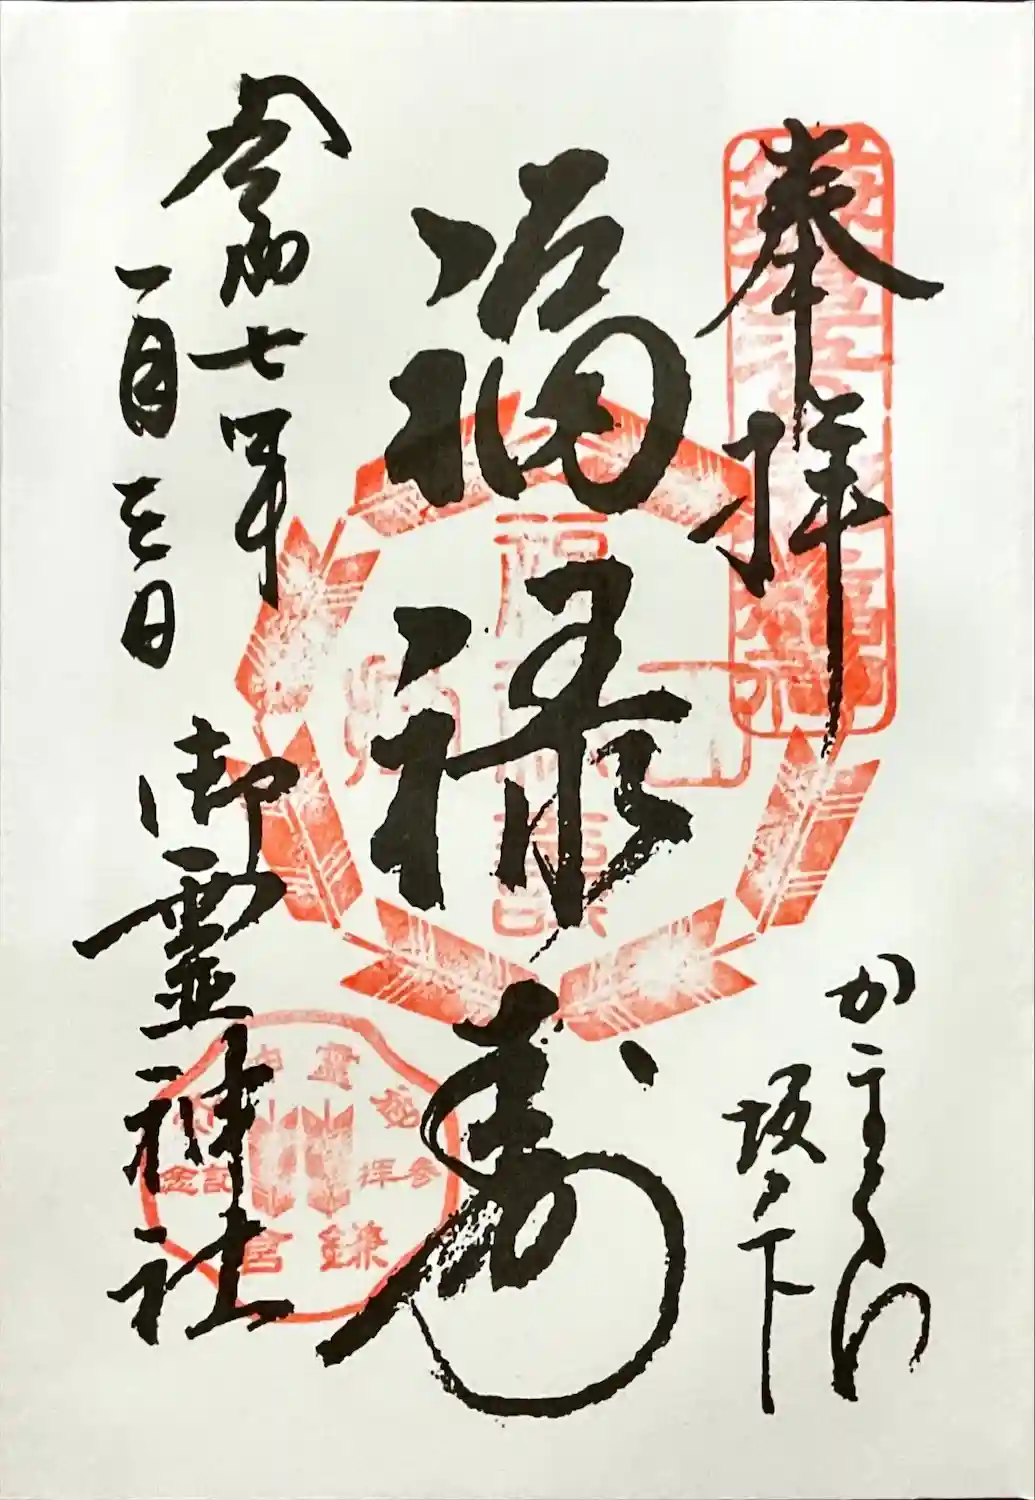 奉拝
かまくら
坂ノ下
福禄寿
令和七年
一月三日
御霊神社
参拝記念
鎌倉